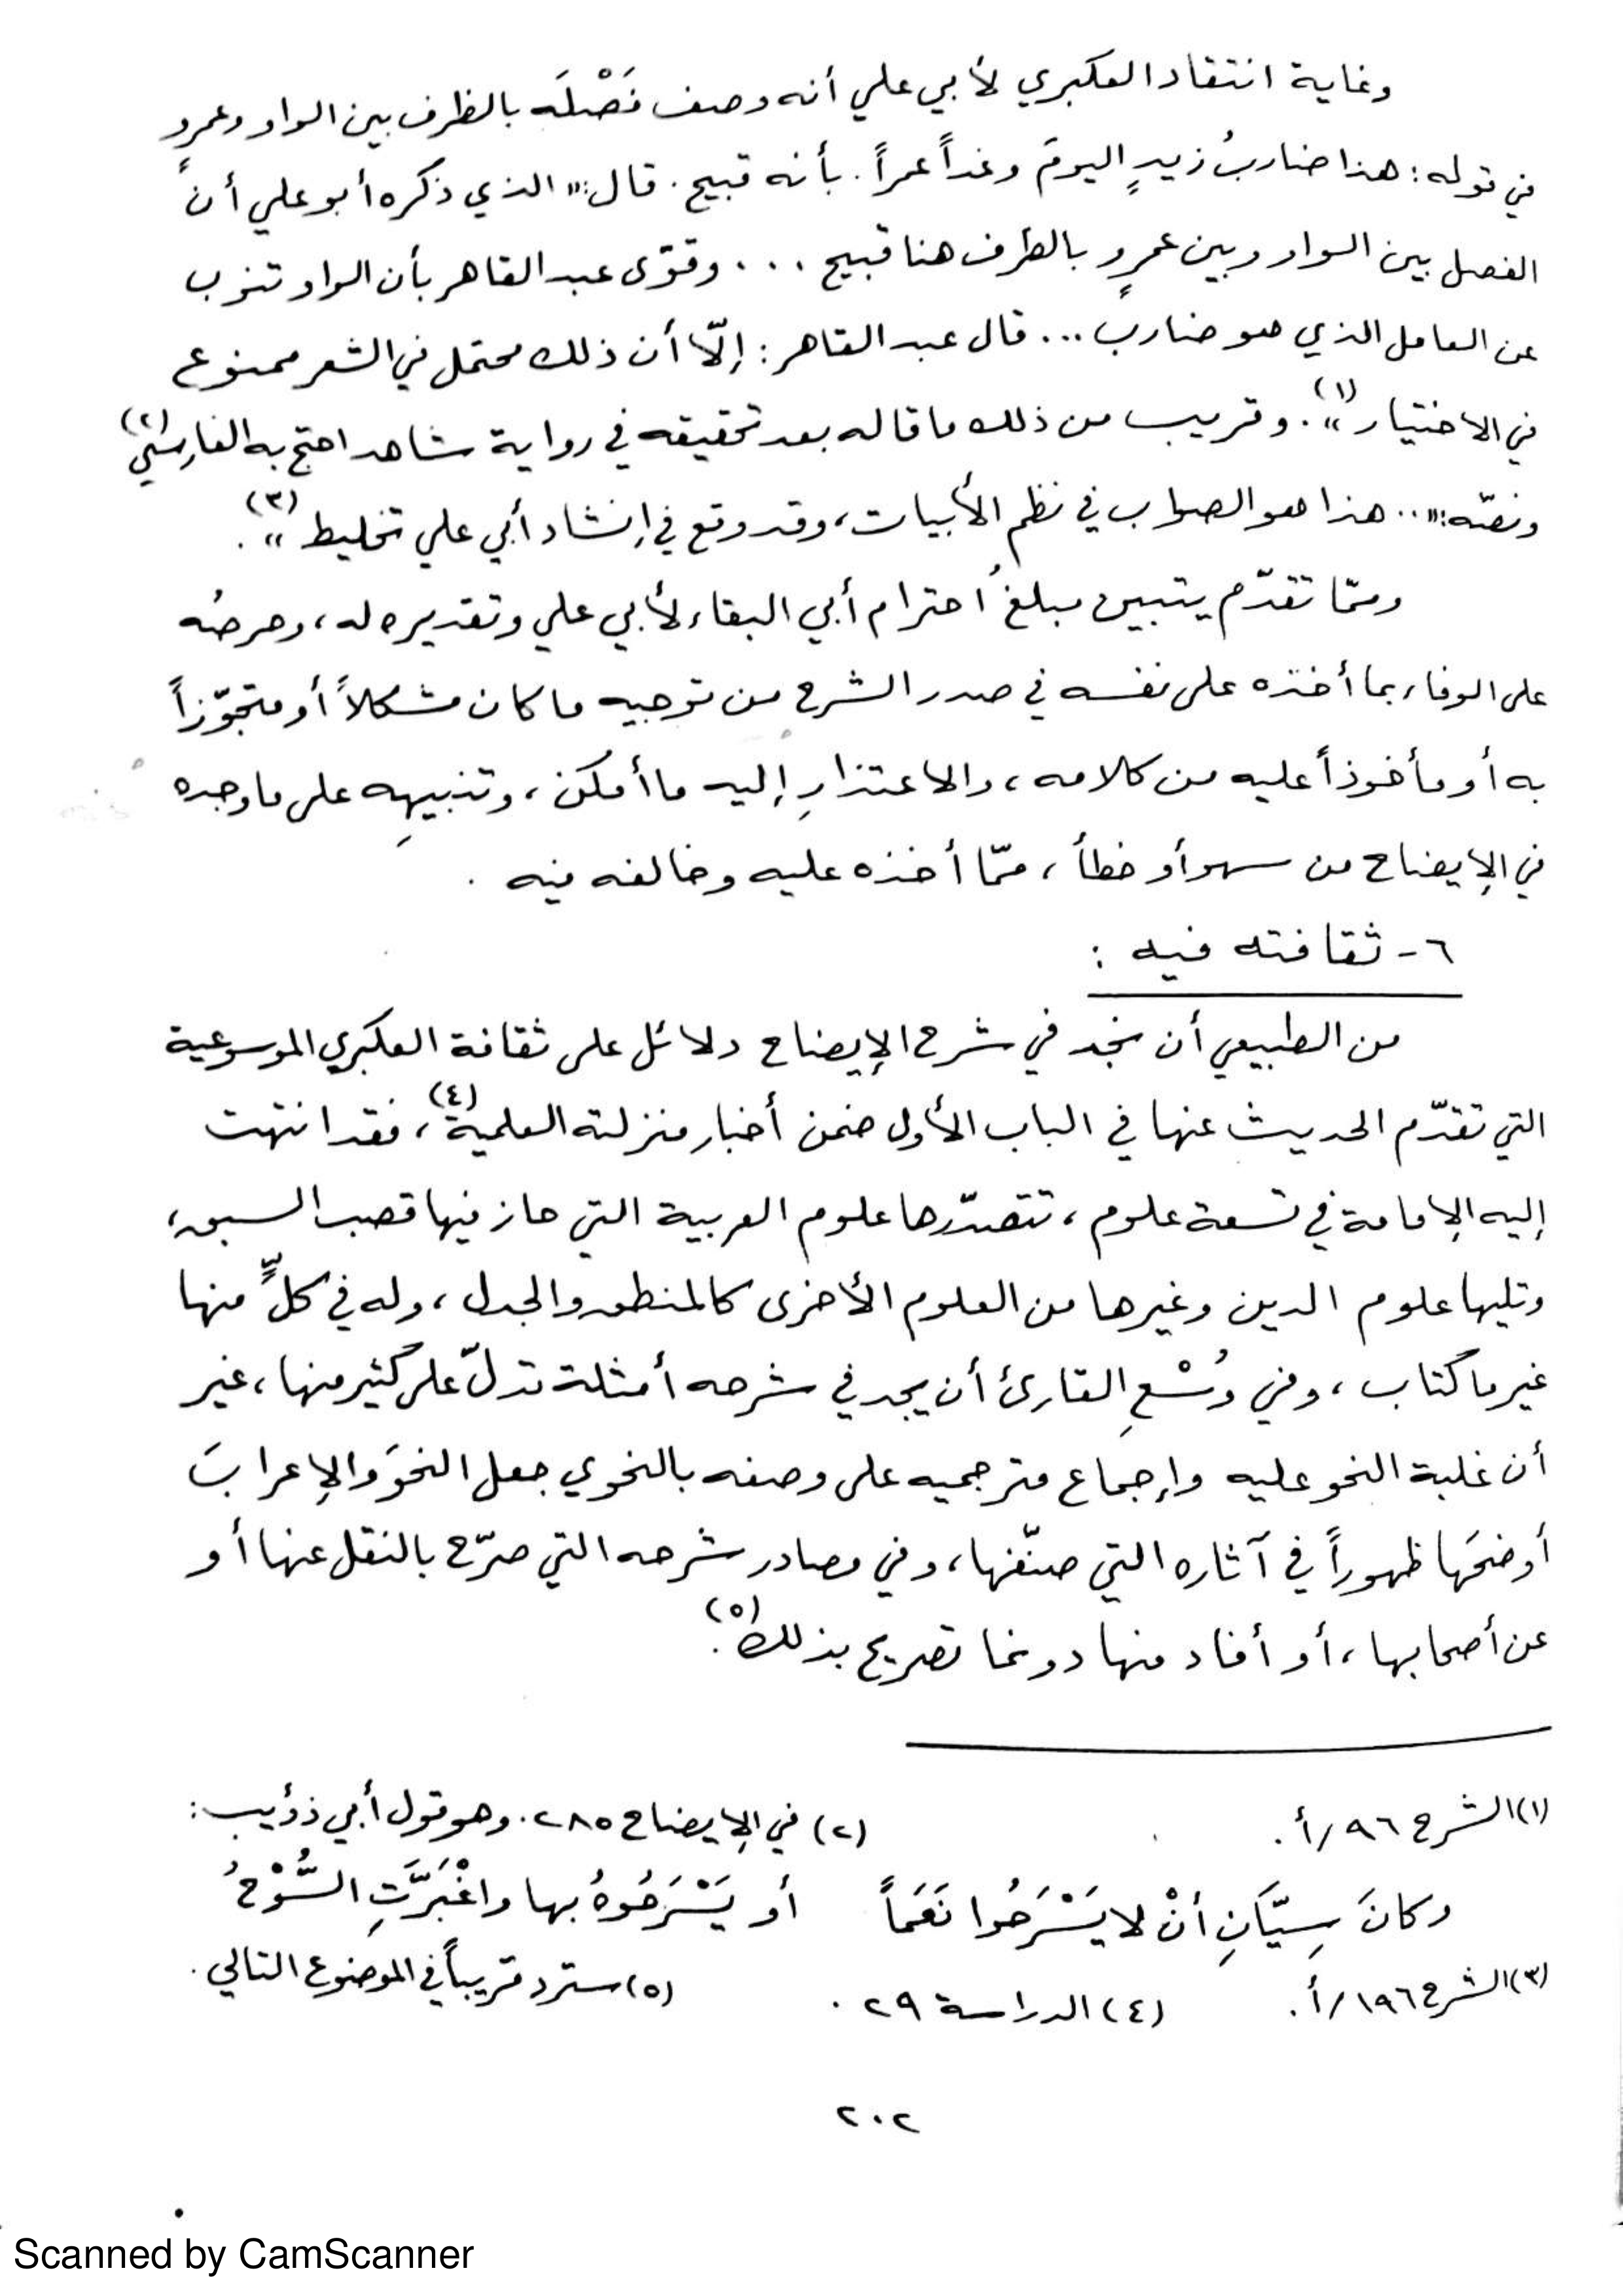 وغاية انتقاد العكبري لأبي علي أنه وصف فَصْلَه بالظرف بين الواو وعمرٍو
في قوله: هذا ضاربُ زيدٍ اليومَ وغداً عمراً. بأنه قبيح. قال: « الذي ذكره أبو علي أن
الفصل بين الواو وبين عمرٍو بالظرف هنا قبيح ... وقوّى عبد القاهر بأن الواو تنوب
عن العامل الذي هو ضارب ... قال عبد القاهر: إلّا أن ذلك محتمل في الشعر ممنوع
في الاختيار »(١). وقريب من ذلك ما قاله بعد تحقيقه في رواية شاهد احتج به الفارسي(٢)
ونصّه: «.. هذا هو الصواب في نظم الأبيات، وقد وقع في إنشاد أبي علي تخليط »(٣).
وممّا تقدّم يتبين مبلغُ احترام أبي البقاء لأبي علي وتقديره له، وحرصُه
على الوفاء بما أخذه على نفسه في صدر الشرح من توجيه ما كان مشكلاً أو متجوّزاً
به أو مأخوذاً عليه من كلامه، والاعتذارِ إليه ما أمكن، وتنبيهِه على ما وجده
في الإيضاح من سهو أو خطأ، ممّا أخذه عليه وخالفه فيه .
٦- ثقافته فيه :
من الطبيعي أن نجد في شرح الإيضاح دلائل على ثقافة العكبري الموسوعية
التي تقدّم الحديث عنها في الباب الأول ضمن أخبار منزلته العلمية(٤)، فقد انتهت
إليه الإمامة في تسعة علوم، تتصدّرها علوم العربية التي حاز فيها قصب السبق،
وتليها علوم الدين وغيرها من العلوم الأخرى كالمنطق والجدل، وله في كلٍّ منها
غير ما كتاب، وفي وُسْعِ القارئ أن يجد في شرحه أمثلة تدلّ على كثير منها، غير
أن غلبة النحو عليه وإجماع مترجميه على وصفه بالنحوي جعل النحوَ والإعرابَ
أوضحَها ظهوراً في آثاره التي صنّفها، وفي مصادر شرحه التي صرّح بالنقل عنها أو
عن أصحابها، أو أفاد منها دونما تصريح بذلك(٥).
(١) الشرح ٩٦/أ. (٢) في الإيضاح ٢٨٥. وهو قول أبي ذؤيب:
وكانَ سِيّانِ أنْ لا يَسْرَحُوا نَعَماً أو يَسْرَحُوهُ بها واغْبَرَّتِ السُّوْحُ
(٣) الشرح ١٩٦/أ. (٤) الدراسة ٢٩. (٥) سترد قريباً في الموضوع التالي.
٢٠٢
Scanned by CamScanner